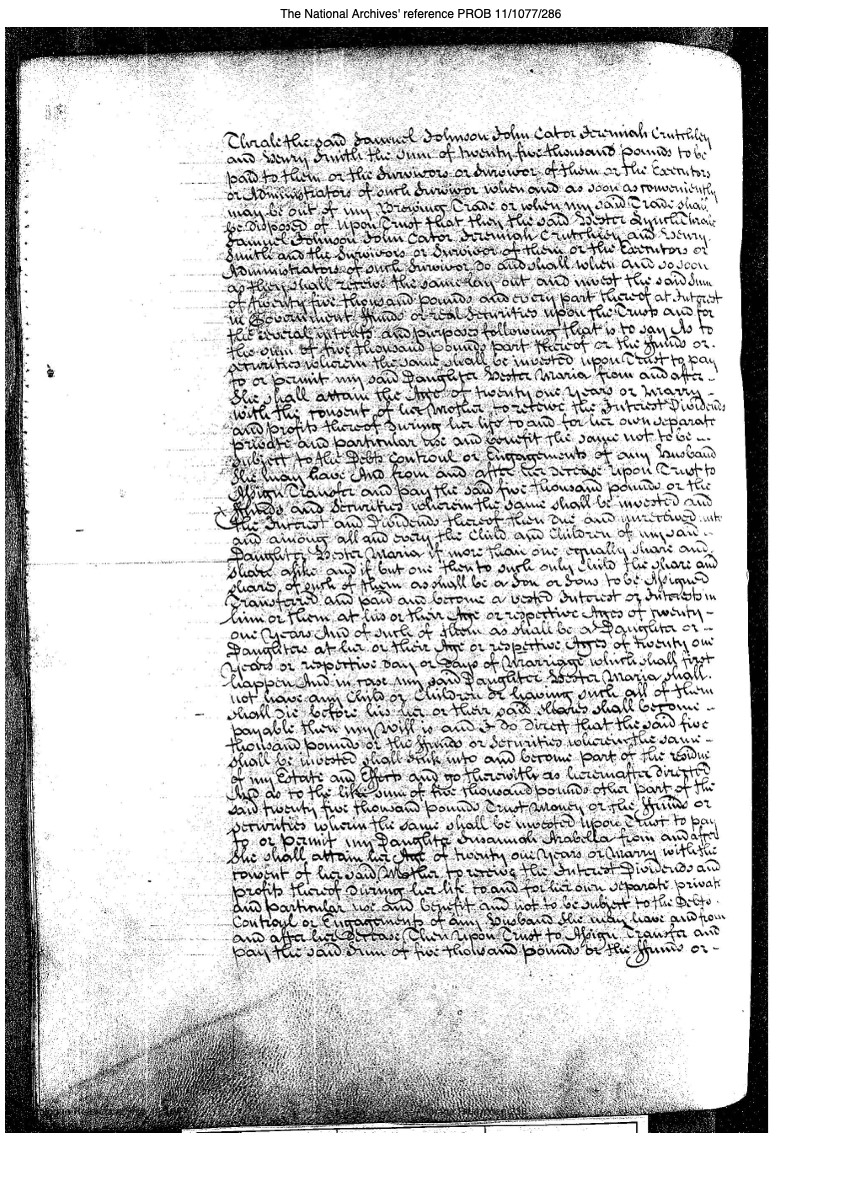 The National Archives' reference PROB 11/1077/286
Thrale the said Samuel Johnson John Cator Jeremiah Crutchley
and Henry Smith the sum of twenty five thousand pounds to be
paid to them or the Survivors or Survivor of them or the Executors
or Administrators of such Survivor when and as soon as conveniently
may be out of my Brewing Trade or when my said Trade shall
be disposed of Upon Trust that they the said Hester Lynch Thrale
Samuel Johnson John Cator Jeremiah Crutchley and Henry
Smith and the Survivors or Survivor of them or the Executors or
Administrators of such Survivor do and shall when and so soon
as they shall receive the same lay out and invest the said Sum
of twenty five thousand pounds and every part thereof at Interest
in Government ffunds or real Securities upon the Trusts and for
the several intents and purposes following that is to say As to
the sum of five thousand pounds part thereof or the ffunds or
securities wherein the same shall be invested upon Trust to pay
to or permit my said Daughter Hester Maria from and after
She shall attain the Age of twenty one Years or Marry
with the consent of her Mother to receive the Interest Dividends
and profits thereof During her life to and for her own separate
private and particular use and benefit the same not to be
subject to the Debts Controul or Engagements of any Husband
She may have And from and after her decease upon Trust to
Assign Transfer and pay the said five thousand pounds or the
ffunds and Securities wherein the same shall be invested and
the Interest and Dividends thereof then due and unreceived unto
and among all and every the Child and Children of my said
Daughter Hester Maria if more than one equally share and
share alike and if but one then to such only child the share and
shares of such of them as shall be a Son or Sons to be Assigned
Transferred and paid and become a vested Interest or Interests in
him or them at his or their Age or respective Ages of twenty
one Years And of such of them as shall be a Daughter or
Daughters at her or their Age or respective Ages of twenty one
Years or respective day or days of Marriage which shall first
happen And in case my said Daughter Hester Maria shall
not have any Child or Children or having such all of them
shall die before his her or their said shares shall become
payable then my Will is and I do direct that the said five
thousand pounds or the ffunds or Securities wherein the same
shall be invested shall sink into and become part of the residue
of my Estate and Effects and go therewith as hereinafter directed
And as to the like sum of five thousand pounds other part of the
said twenty five thousand pounds Trust Money or the ffunds or
securities wherein the same shall be invested upon Trust to pay
to or permit my Daughter Susannah Arabella from and after
She shall attain her Age of twenty one Years or Marry with the
consent of her said Mother to receive the Interest Dividends and
profits thereof During her life to and for her own separate private
and particular use and benefit and not to be subject to the Debts
Controul or Engagements of any Husband She may have and from
and after her decease Then Upon Trust to Assign Transfer and
pay the said Sum of five thousand pounds or the ffunds or